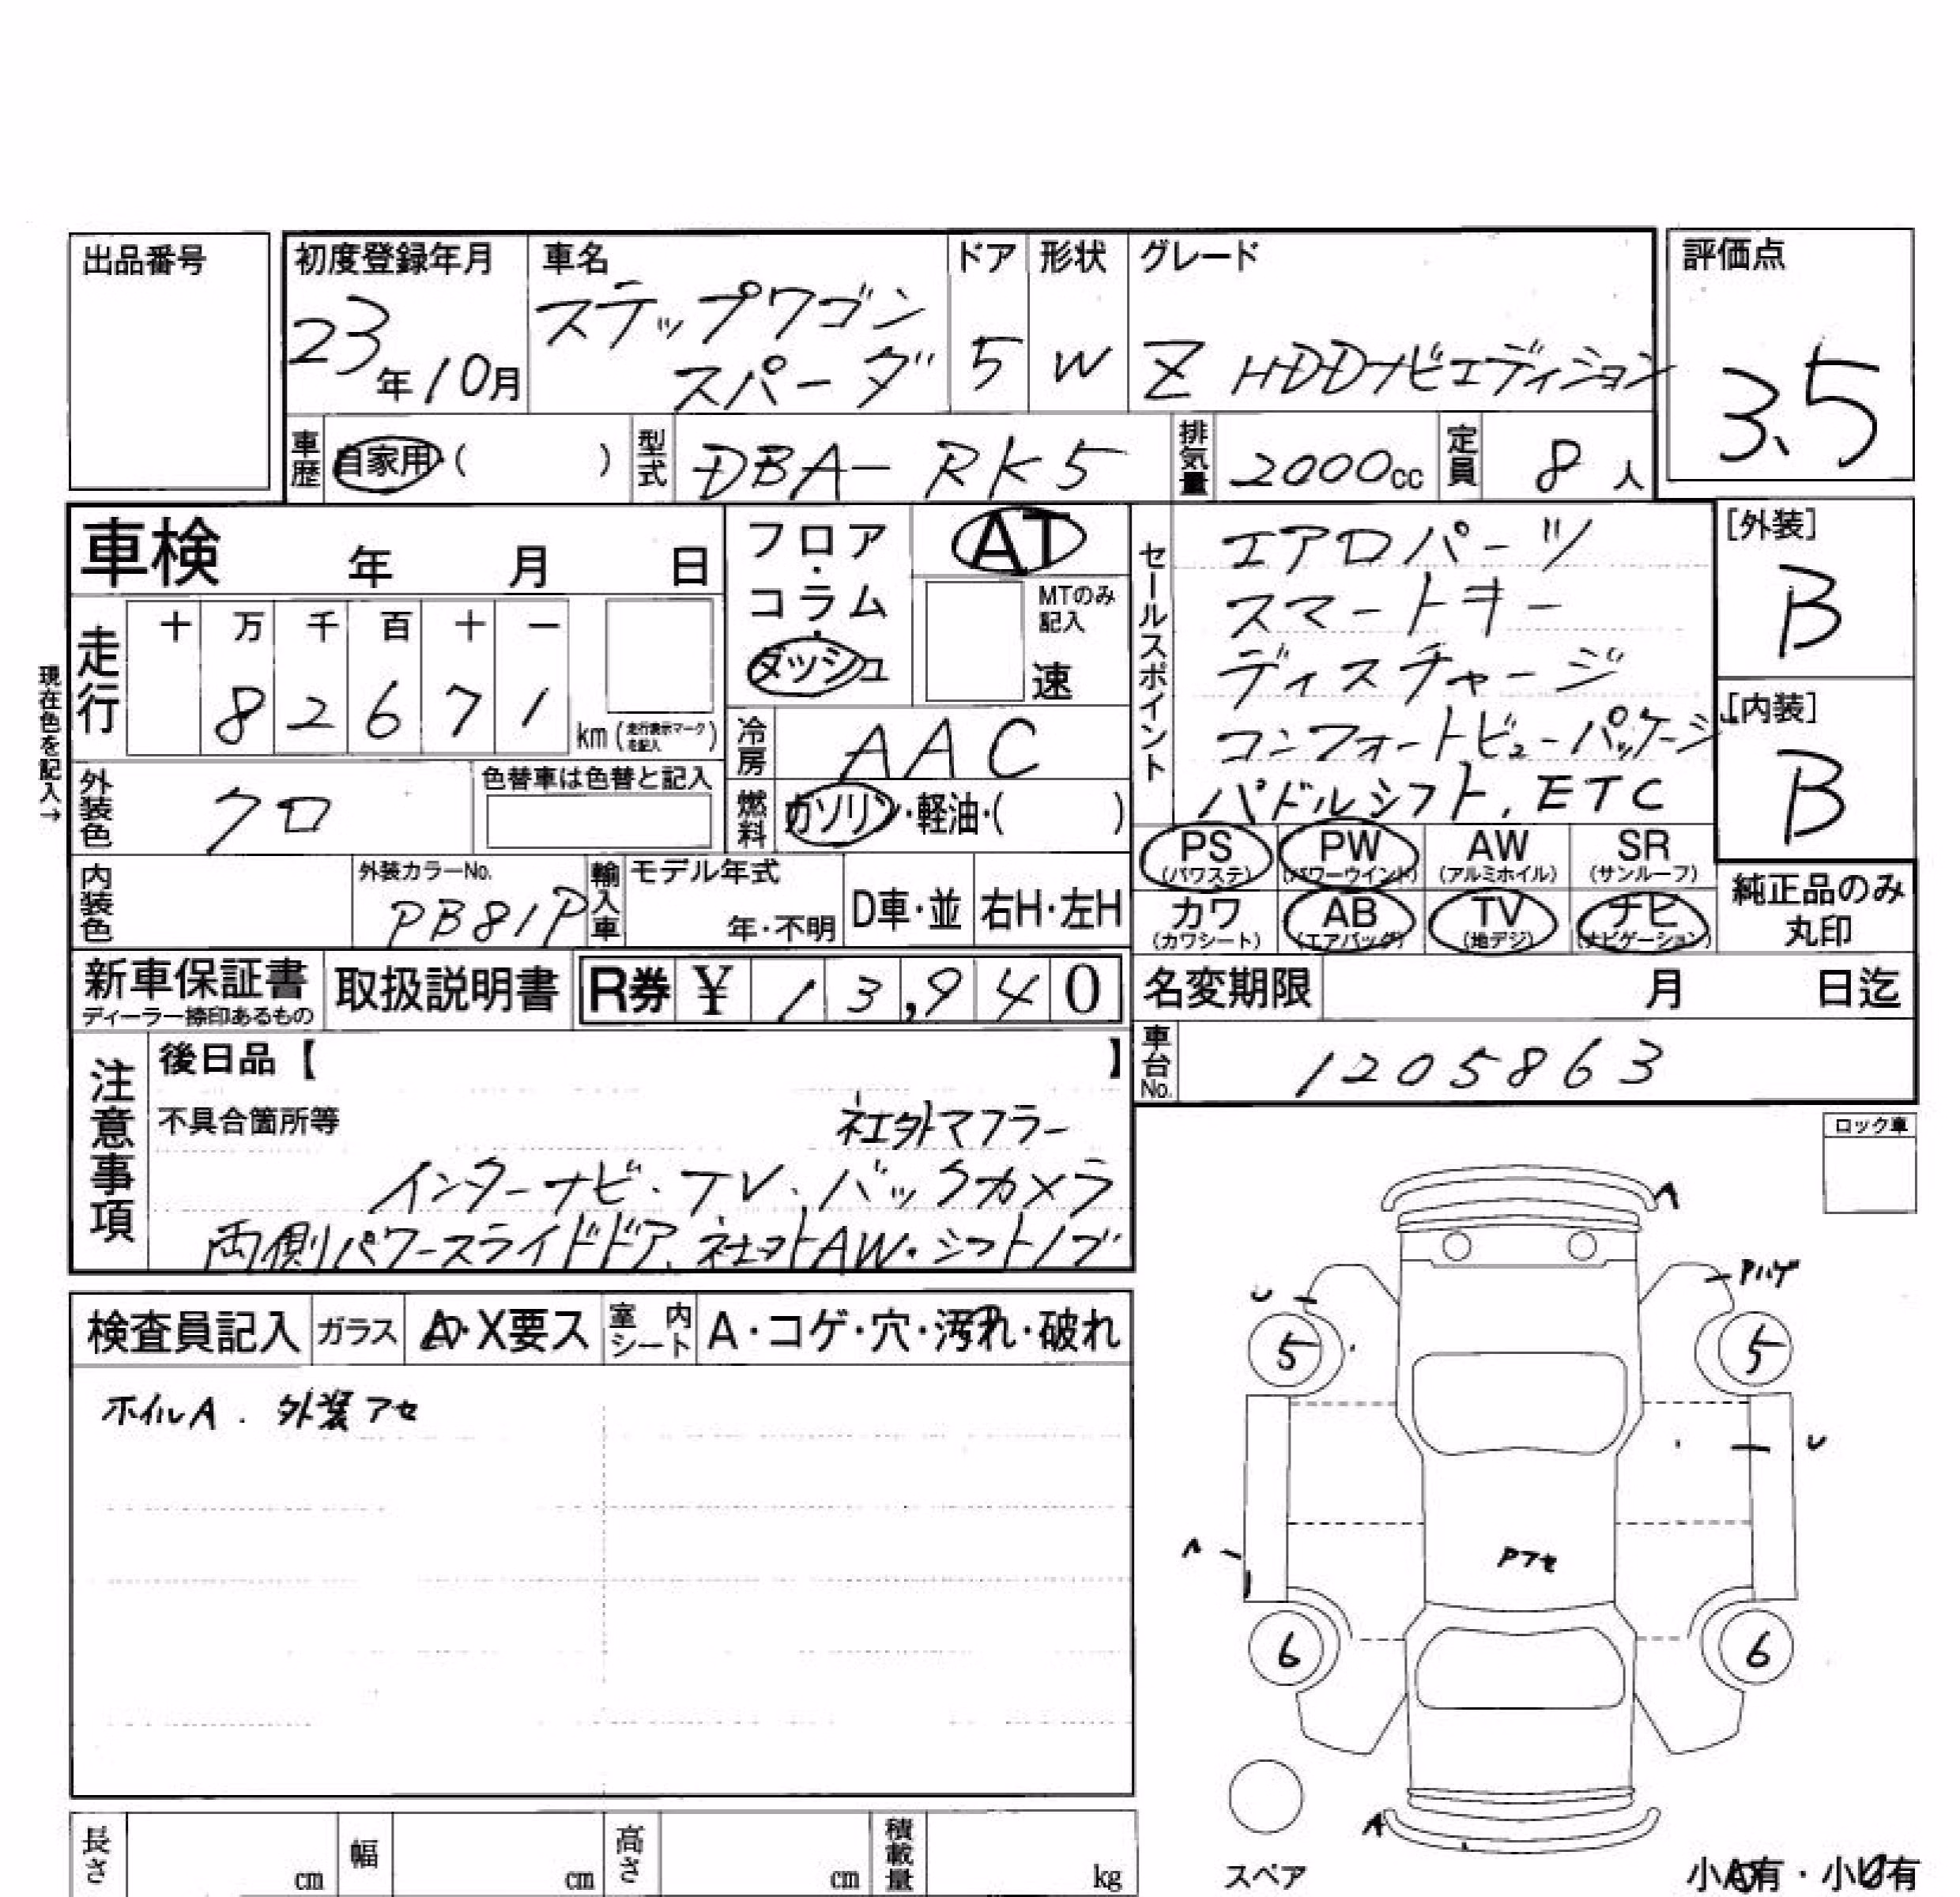 出品番号
初度登録年月 車名 ドア 形状 グレード 評価点
23年10月 ステップワゴン スパーダ 5 W Z HDDナビエディション 3.5
車歴 自家用・( ) 型式 DBA-RK5 排気量 2000cc 定員 8人
車検 年 月 日
フロア・コラム・ダッシュ AT
MTのみ記入 速
セールスポイント
エアロパーツ
スマートキー
ディスチャージ
コンフォートビューパッケージ
パドルシフト, ETC
[外装]
B
[内装]
B
現在色を記入→
走行 十 万 千 百 十 一
8 2 6 7 1 km(走行表示マークを記入)
冷房 AAC
外装色 クロ 色替車は色替と記入
燃料 ガソリン・軽油・( )
PS (パワステ) PW (パワーウインド) AW (アルミホイル) SR (サンルーフ)
カワ (カワシート) AB (エアバッグ) TV (地デジ) ナビ (ナビゲーション)
純正品のみ丸印
内装色 外装カラーNo. PB81P 輸入車 モデル年式 年・不明 D車・並 右H・左H
新車保証書 ディーラー捺印あるもの 取扱説明書 R券 ¥ 13,940 名変期限 月 日迄
車台No. 1205863
注意事項
後日品【 】
不具合箇所等 社外マフラー
インターナビ・TV、バックカメラ
両側パワースライドドア、社外AW・シフトノブ
ロック車
検査員記入 ガラス A・X要ス 室内シート A・コゲ・穴・汚れ・破れ
ホイルA. 外装アセ
A
U Pハゲ
5 5
U
A Pアセ
6 6
A
スペア 小A有・小U有
長さ cm 幅 cm 高さ cm 積載量 kg